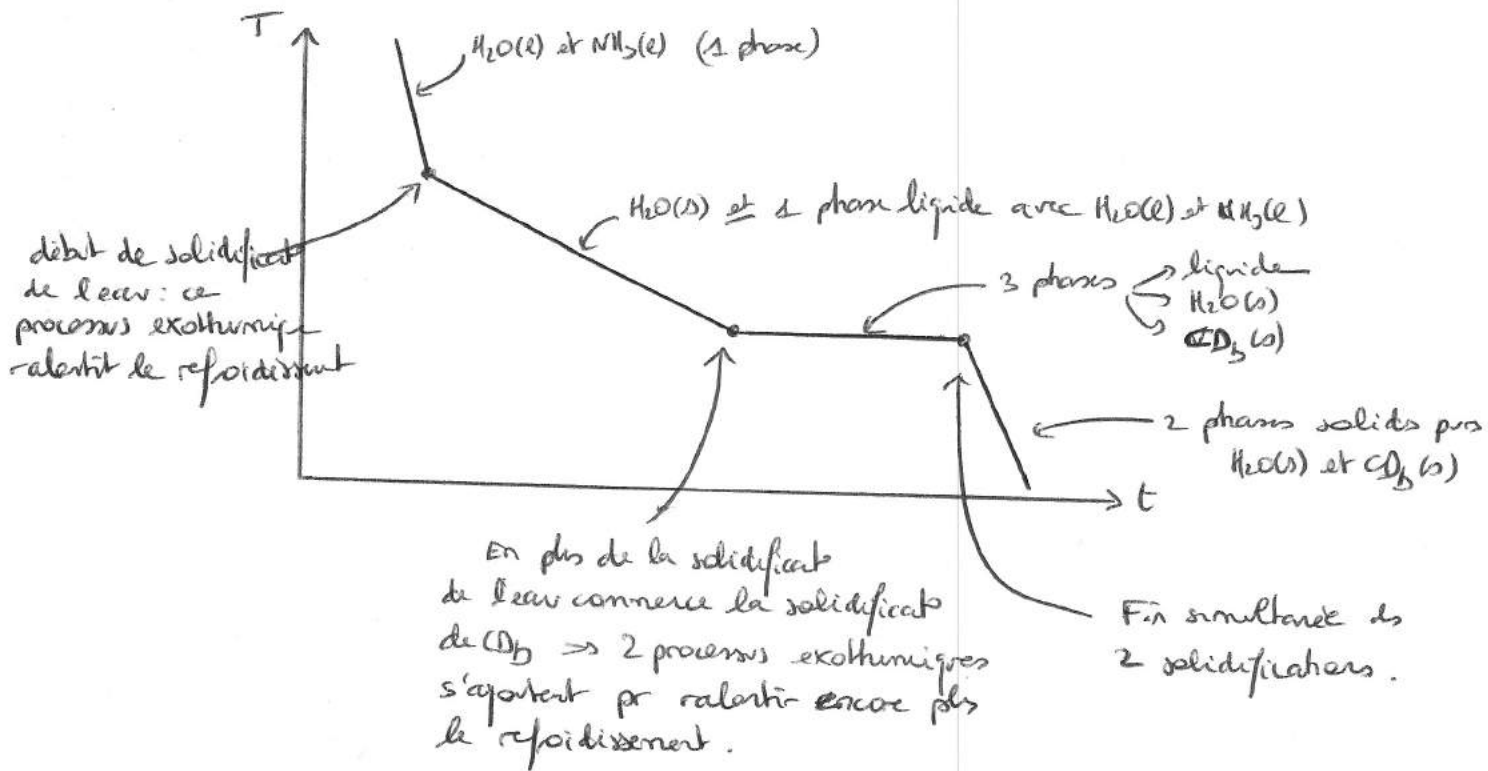 T
H₂O(l) et NH₃(l) (1 phase)
H₂O(s) et 1 phase liquide avec H₂O(l) et NH₃(l)
début de solidificat
de l'eau : ce
processus exothermiq
ralentit le refroidissent
3 phases
liquide
H₂O(s)
CD_b(s)
2 phases solids pures
H₂O(s) et CD_b(s)
t
En plus de la solidificat°
de l'eau commence la solidificat°
de CD_b => 2 processus exothermiques
s'ajoutent pr ralentir encore plus
le refroidissement.
Fin simultanée des
2 solidifications.